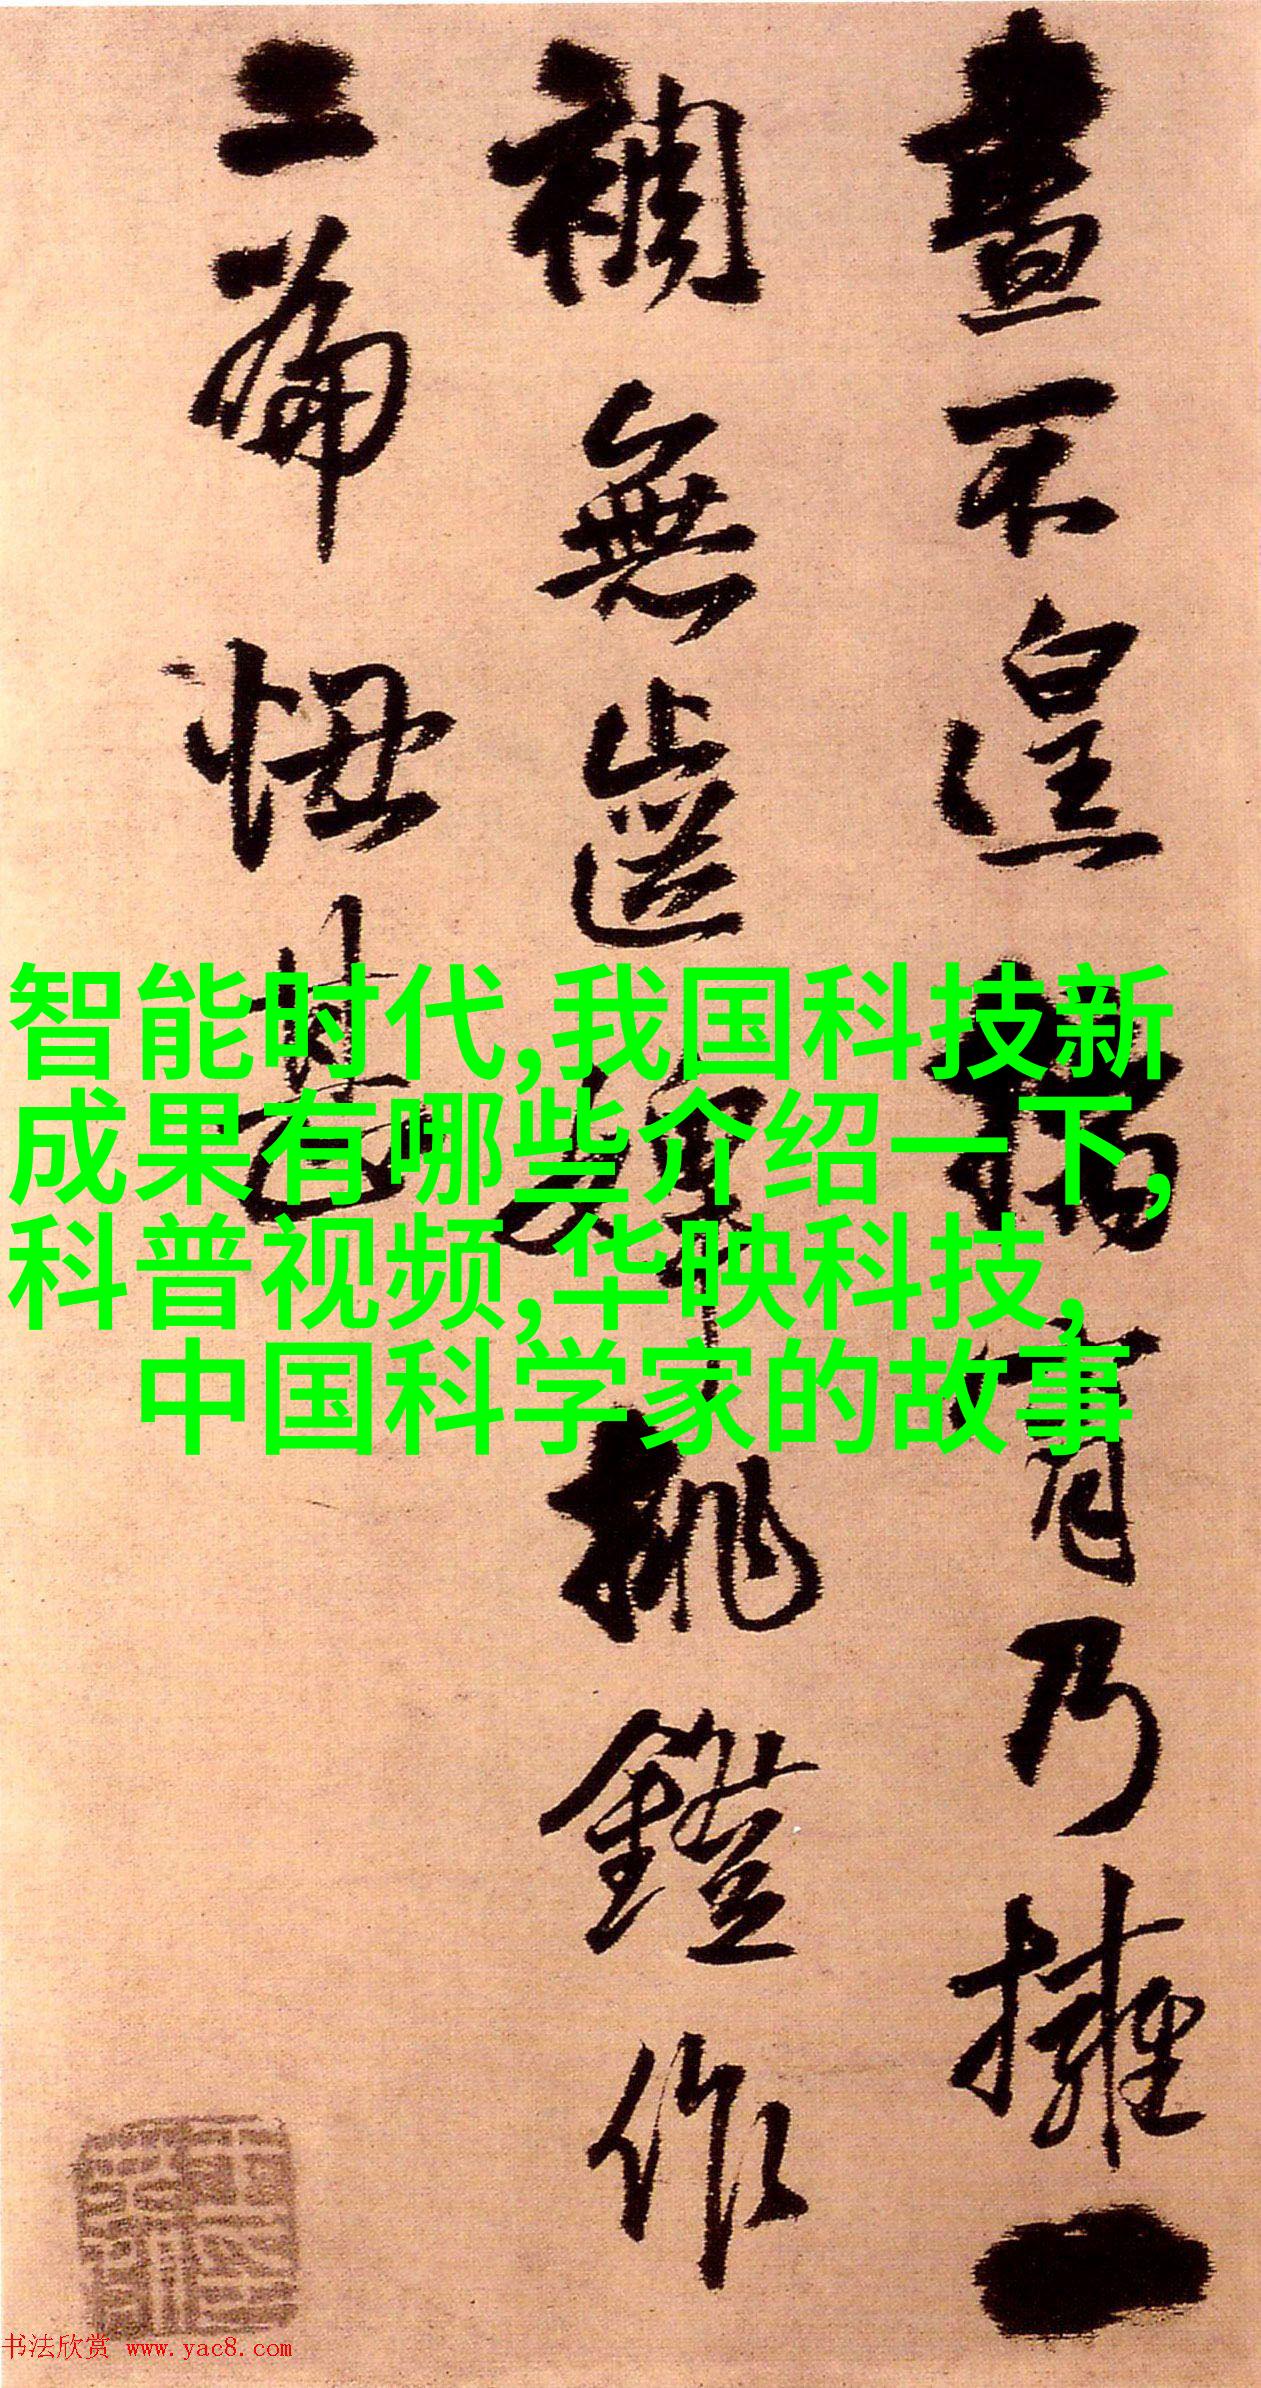 晝不遑宵乃擁一
無挑鐙作
三篇
智能时代,我国科技新
成果有哪些介绍一下,
科普视频,华映科技,
中国科学家的故事
书法欣赏 www.yac8.com